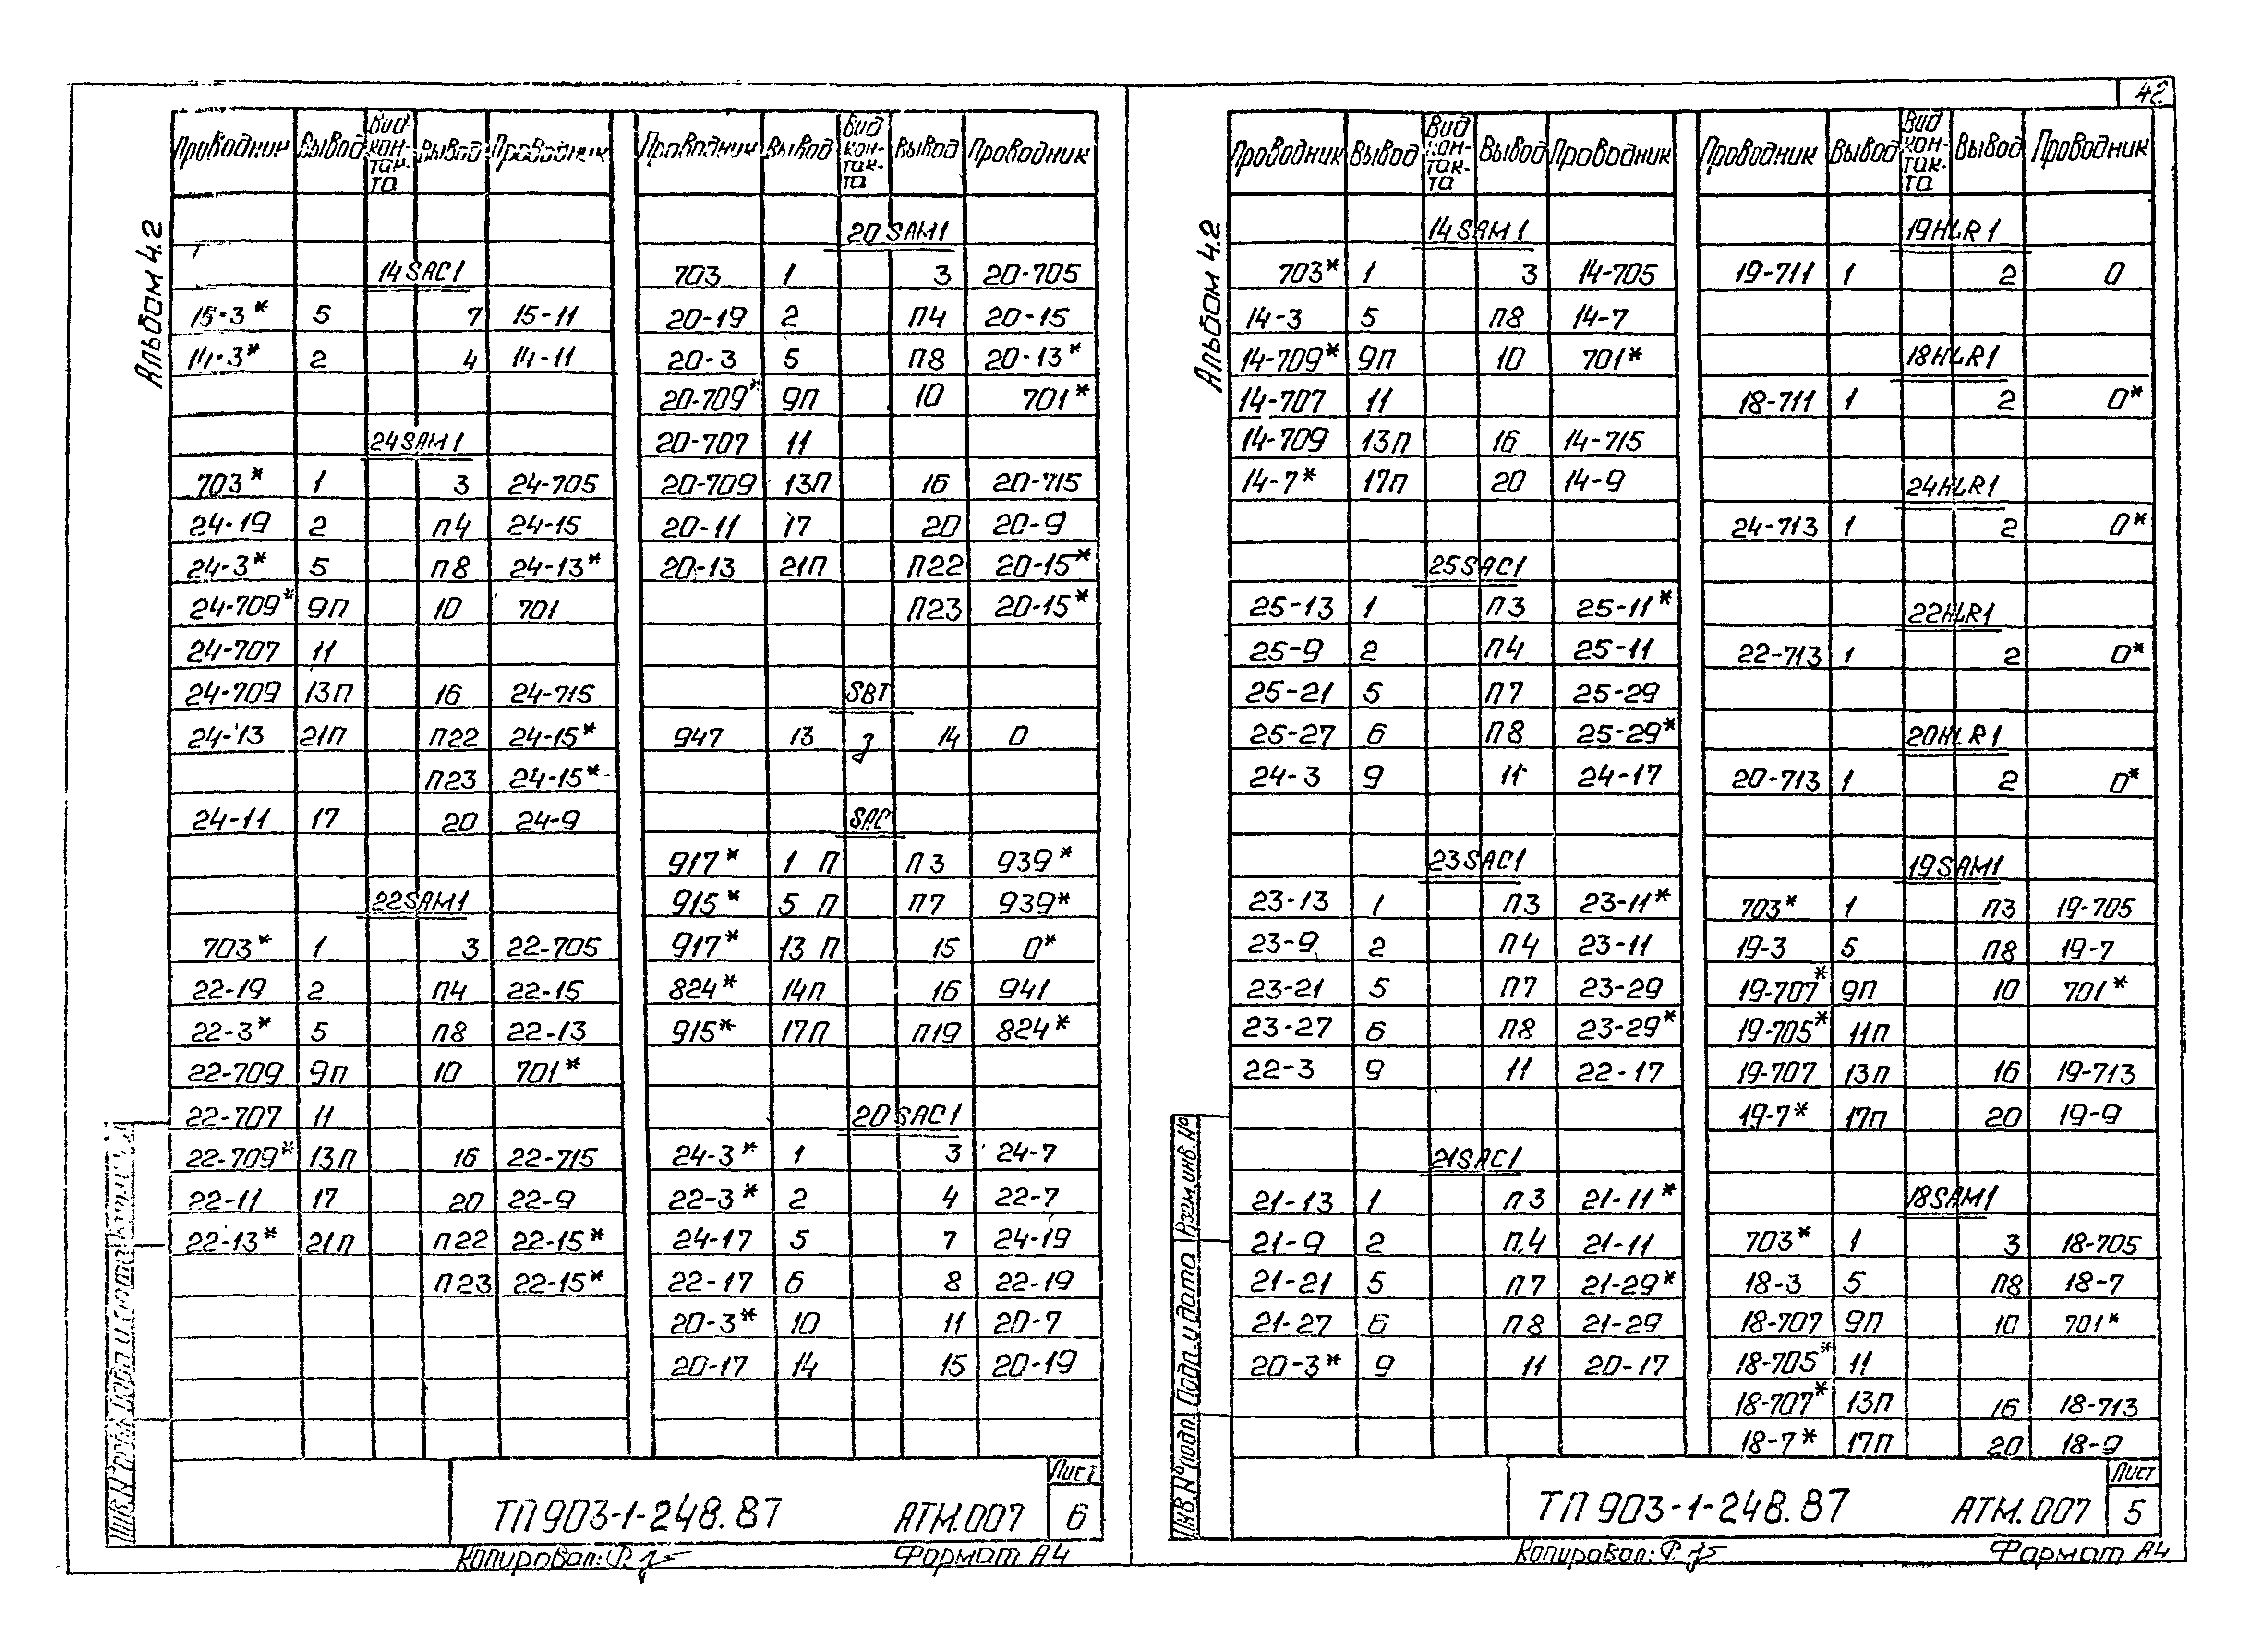 42
Альбом 4.2
Проводник Вывод Вид кон-так-та Вывод Проводник
14SAC1
15-3* 5 7 15-11
14-3* 2 4 14-11
24SAM1
703* 1 3 24-705
24-19 2 П4 24-15
24-3* 5 П8 24-13*
24-709* 9П 10 701
24-707 11
24-709 13П 16 24-715
24-13 21П П22 24-15*
П23 24-15*
24-11 17 20 24-9
22SAM1
703* 1 3 22-705
22-19 2 П4 22-15
22-3* 5 П8 22-13
22-709 9П 10 701*
22-707 11
22-709* 13П 16 22-715
22-11 17 20 22-9
22-13* 21П П22 22-15*
П23 22-15*
Проводник Вывод Вид кон-так-та Вывод Проводник
20SAM1
703 1 3 20-705
20-19 2 П4 20-15
20-3 5 П8 20-13*
20-709* 9П 10 701*
20-707 11
20-709 13П 16 20-715
20-11 17 20 20-9
20-13 21П П22 20-15*
П23 20-15*
SBT
947 13 з 14 0
SAC
917* 1 П П3 939*
915* 5 П П7 939*
917* 13 П 15 0*
824* 14П 16 941
915* 17П П19 824*
20SAC1
24-3* 1 3 24-7
22-3* 2 4 22-7
24-17 5 7 24-19
22-17 6 8 22-19
20-3* 10 11 20-7
20-17 14 15 20-19
ТП 903-1-248.87 АТМ.007 Лист 6
Копировал: Формат А4
Альбом 4.2
Проводник Вывод Вид кон-так-та Вывод Проводник
14SAM1
703* 1 3 14-705
14-3 5 П8 14-7
14-709* 9П 10 701*
14-707 11
14-709 13П 16 14-715
14-7* 17П 20 14-9
25SAC1
25-13 1 П3 25-11*
25-9 2 П4 25-11
25-21 5 П7 25-29
25-27 6 П8 25-29*
24-3 9 11 24-17
23SAC1
23-13 1 П3 23-11*
23-9 2 П4 23-11
23-21 5 П7 23-29
23-27 6 П8 23-29*
22-3 9 11 22-17
21SAC1
21-13 1 П3 21-11*
21-9 2 П4 21-11
21-21 5 П7 21-29*
21-27 6 П8 21-29
20-3* 9 11 20-17
Проводник Вывод Вид кон-так-та Вывод Проводник
19HLR1
19-711 1 2 0
18HLR1
18-711 1 2 0*
24HLR1
24-713 1 2 0*
22HLR1
22-713 1 2 0*
20HLR1
20-713 1 2 0*
19SAM1
703* 1 П3 19-705
19-3 5 П8 19-7
19-707* 9П 10 701*
19-705* 11П
19-707 13П 16 19-713
19-7* 17П 20 19-9
18SAM1
703* 1 3 18-705
18-3 5 П8 18-7
18-707 9П 10 701*
18-705* 11
18-707* 13П 16 18-713
18-7* 17П 20 18-9
Инв. № подл. Подп. и дата Взам. инв. №
ТП 903-1-248.87 АТМ.007 Лист 5
Копировал: Формат А4